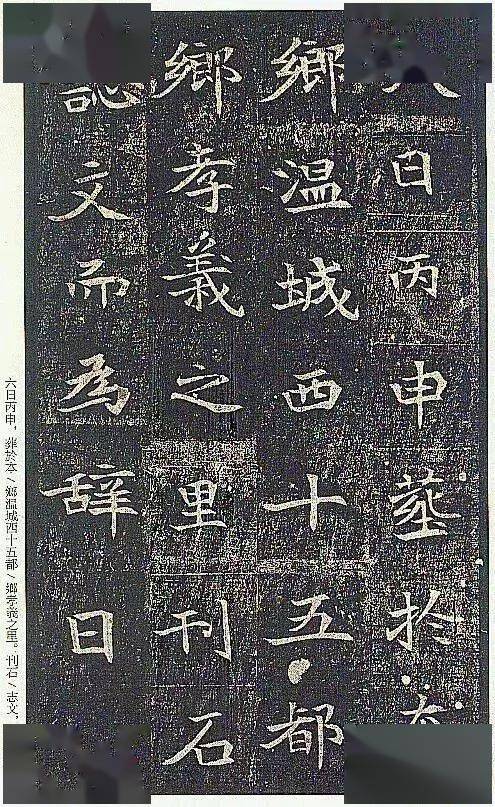 日丙申葬於本
鄉温城西十五都
鄉孝義之里刊石
誌文而為辞曰
六日丙申，葬於本／鄉温城西十五都／鄉孝義之里。刊石／志文，